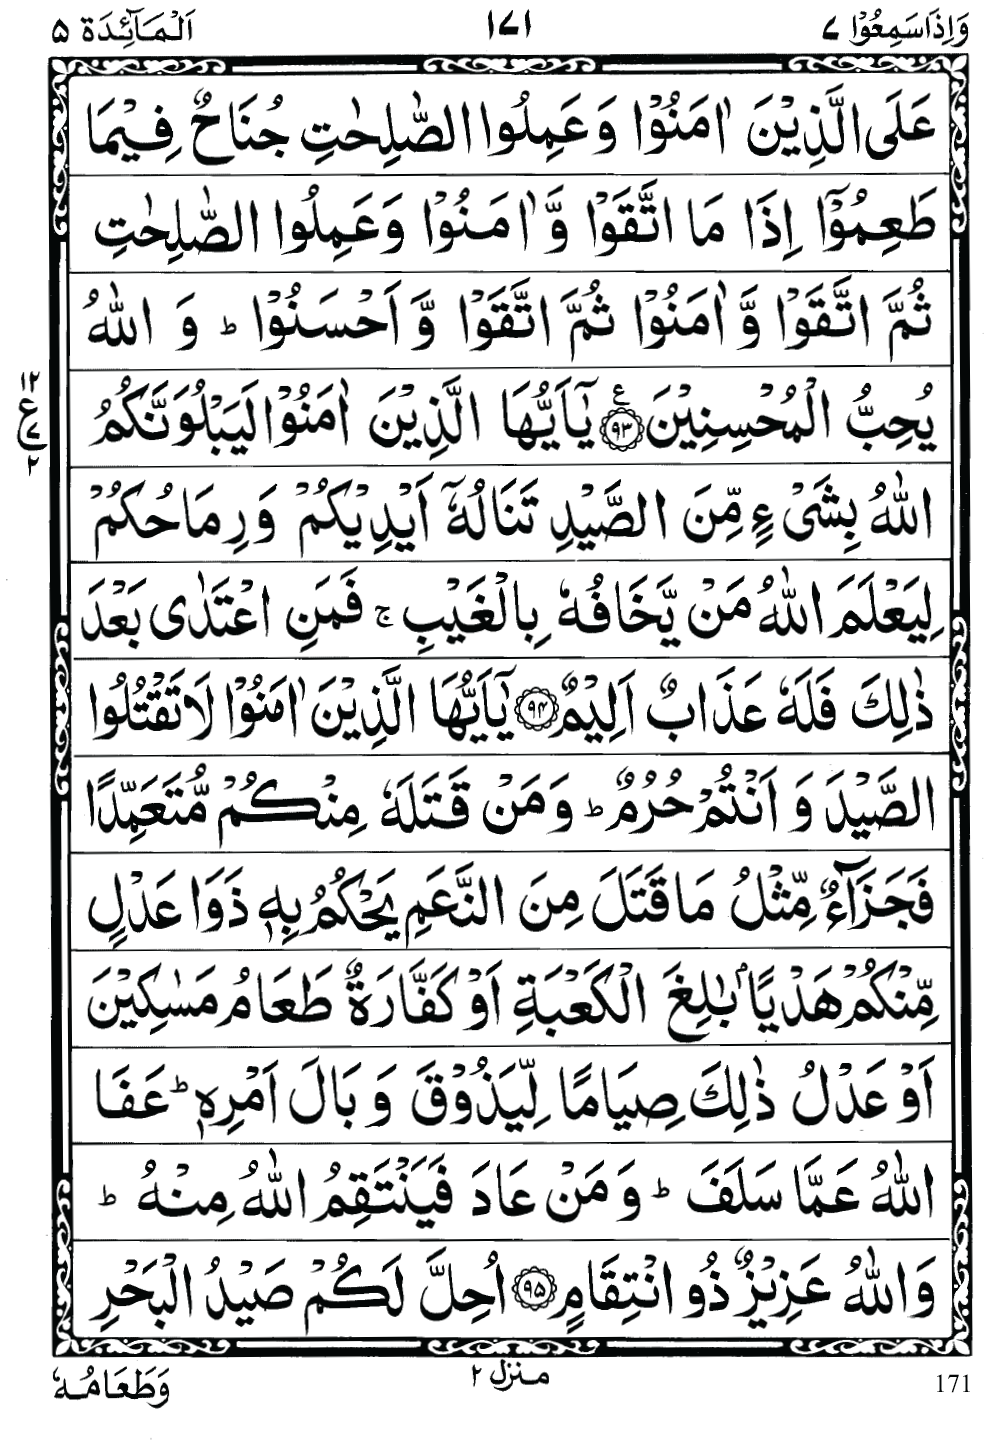 وَاِذَا سَمِعُوْا ۷ ۱۷۱ اَلْمَآئِدَة ۵
عَلَى الَّذِيْنَ اٰمَنُوْا وَعَمِلُوا الصّٰلِحٰتِ جُنَاحٌ فِيْمَا
طَعِمُوْۤا اِذَا مَا اتَّقَوْا وَّاٰمَنُوْا وَعَمِلُوا الصّٰلِحٰتِ
ثُمَّ اتَّقَوْا وَّاٰمَنُوْا ثُمَّ اتَّقَوْا وَّاَحْسَنُوْا ؕ وَ اللّٰهُ
يُحِبُّ الْمُحْسِنِيْنَ ۹۳ ع يٰۤاَيُّهَا الَّذِيْنَ اٰمَنُوْا لَيَبْلُوَنَّكُمُ
۱۲
ع
۷
۲
اللّٰهُ بِشَیْءٍ مِّنَ الصَّيْدِ تَنَالُهٗۤ اَيْدِيْكُمْ وَرِمَاحُكُمْ
لِيَعْلَمَ اللّٰهُ مَنْ يَّخَافُهٗ بِالْغَيْبِ ۚ فَمَنِ اعْتَدٰى بَعْدَ
ذٰلِكَ فَلَهٗ عَذَابٌ اَلِيْمٌ ۹۴ يٰۤاَيُّهَا الَّذِيْنَ اٰمَنُوْا لَا تَقْتُلُوا
الصَّيْدَ وَ اَنْتُمْ حُرُمٌ ؕ وَمَنْ قَتَلَهٗ مِنْكُمْ مُّتَعَمِّدًا
فَجَزَآءٌ مِّثْلُ مَا قَتَلَ مِنَ النَّعَمِ يَحْكُمُ بِهٖ ذَوَا عَدْلٍ
مِّنْكُمْ هَدْيًۢا بٰلِغَ الْكَعْبَةِ اَوْ كَفَّارَةٌ طَعَامُ مَسٰكِيْنَ
اَوْ عَدْلُ ذٰلِكَ صِيَامًا لِّيَذُوْقَ وَبَالَ اَمْرِهٖ ؕ عَفَا
اللّٰهُ عَمَّا سَلَفَ ؕ وَمَنْ عَادَ فَيَنْتَقِمُ اللّٰهُ مِنْهُ ؕ
وَاللّٰهُ عَزِيْزٌ ذُو انْتِقَامٍ ۹۵ اُحِلَّ لَكُمْ صَيْدُ الْبَحْرِ
171 منزل ۲ وَطَعَامُهٗ